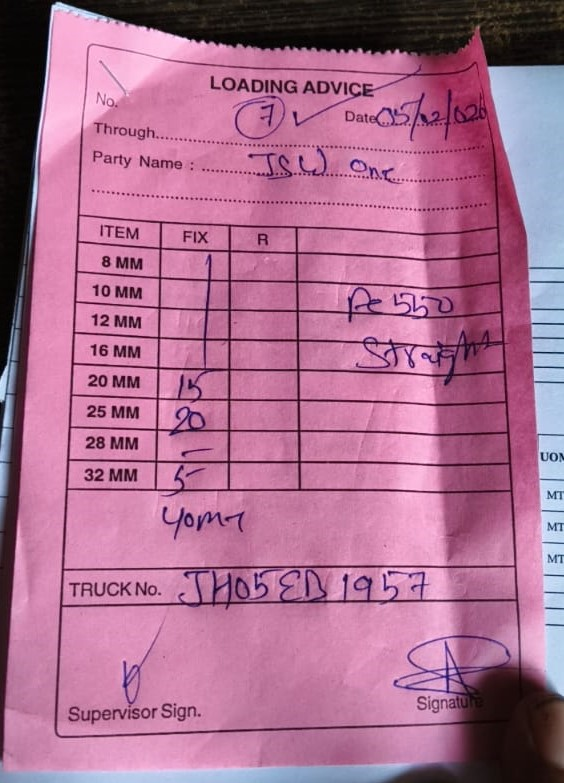 LOADING ADVICE
No. 7 Date 05/02/026
Through
Party Name : JSW One
ITEM FIX R
8 MM
10 MM
12 MM
16 MM
Fe 550
Straight
20 MM 15
25 MM 20
28 MM –
32 MM 5
40MT
TRUCK No. JH05EB1957
Supervisor Sign. Signature
UOM
MT
MT
MT